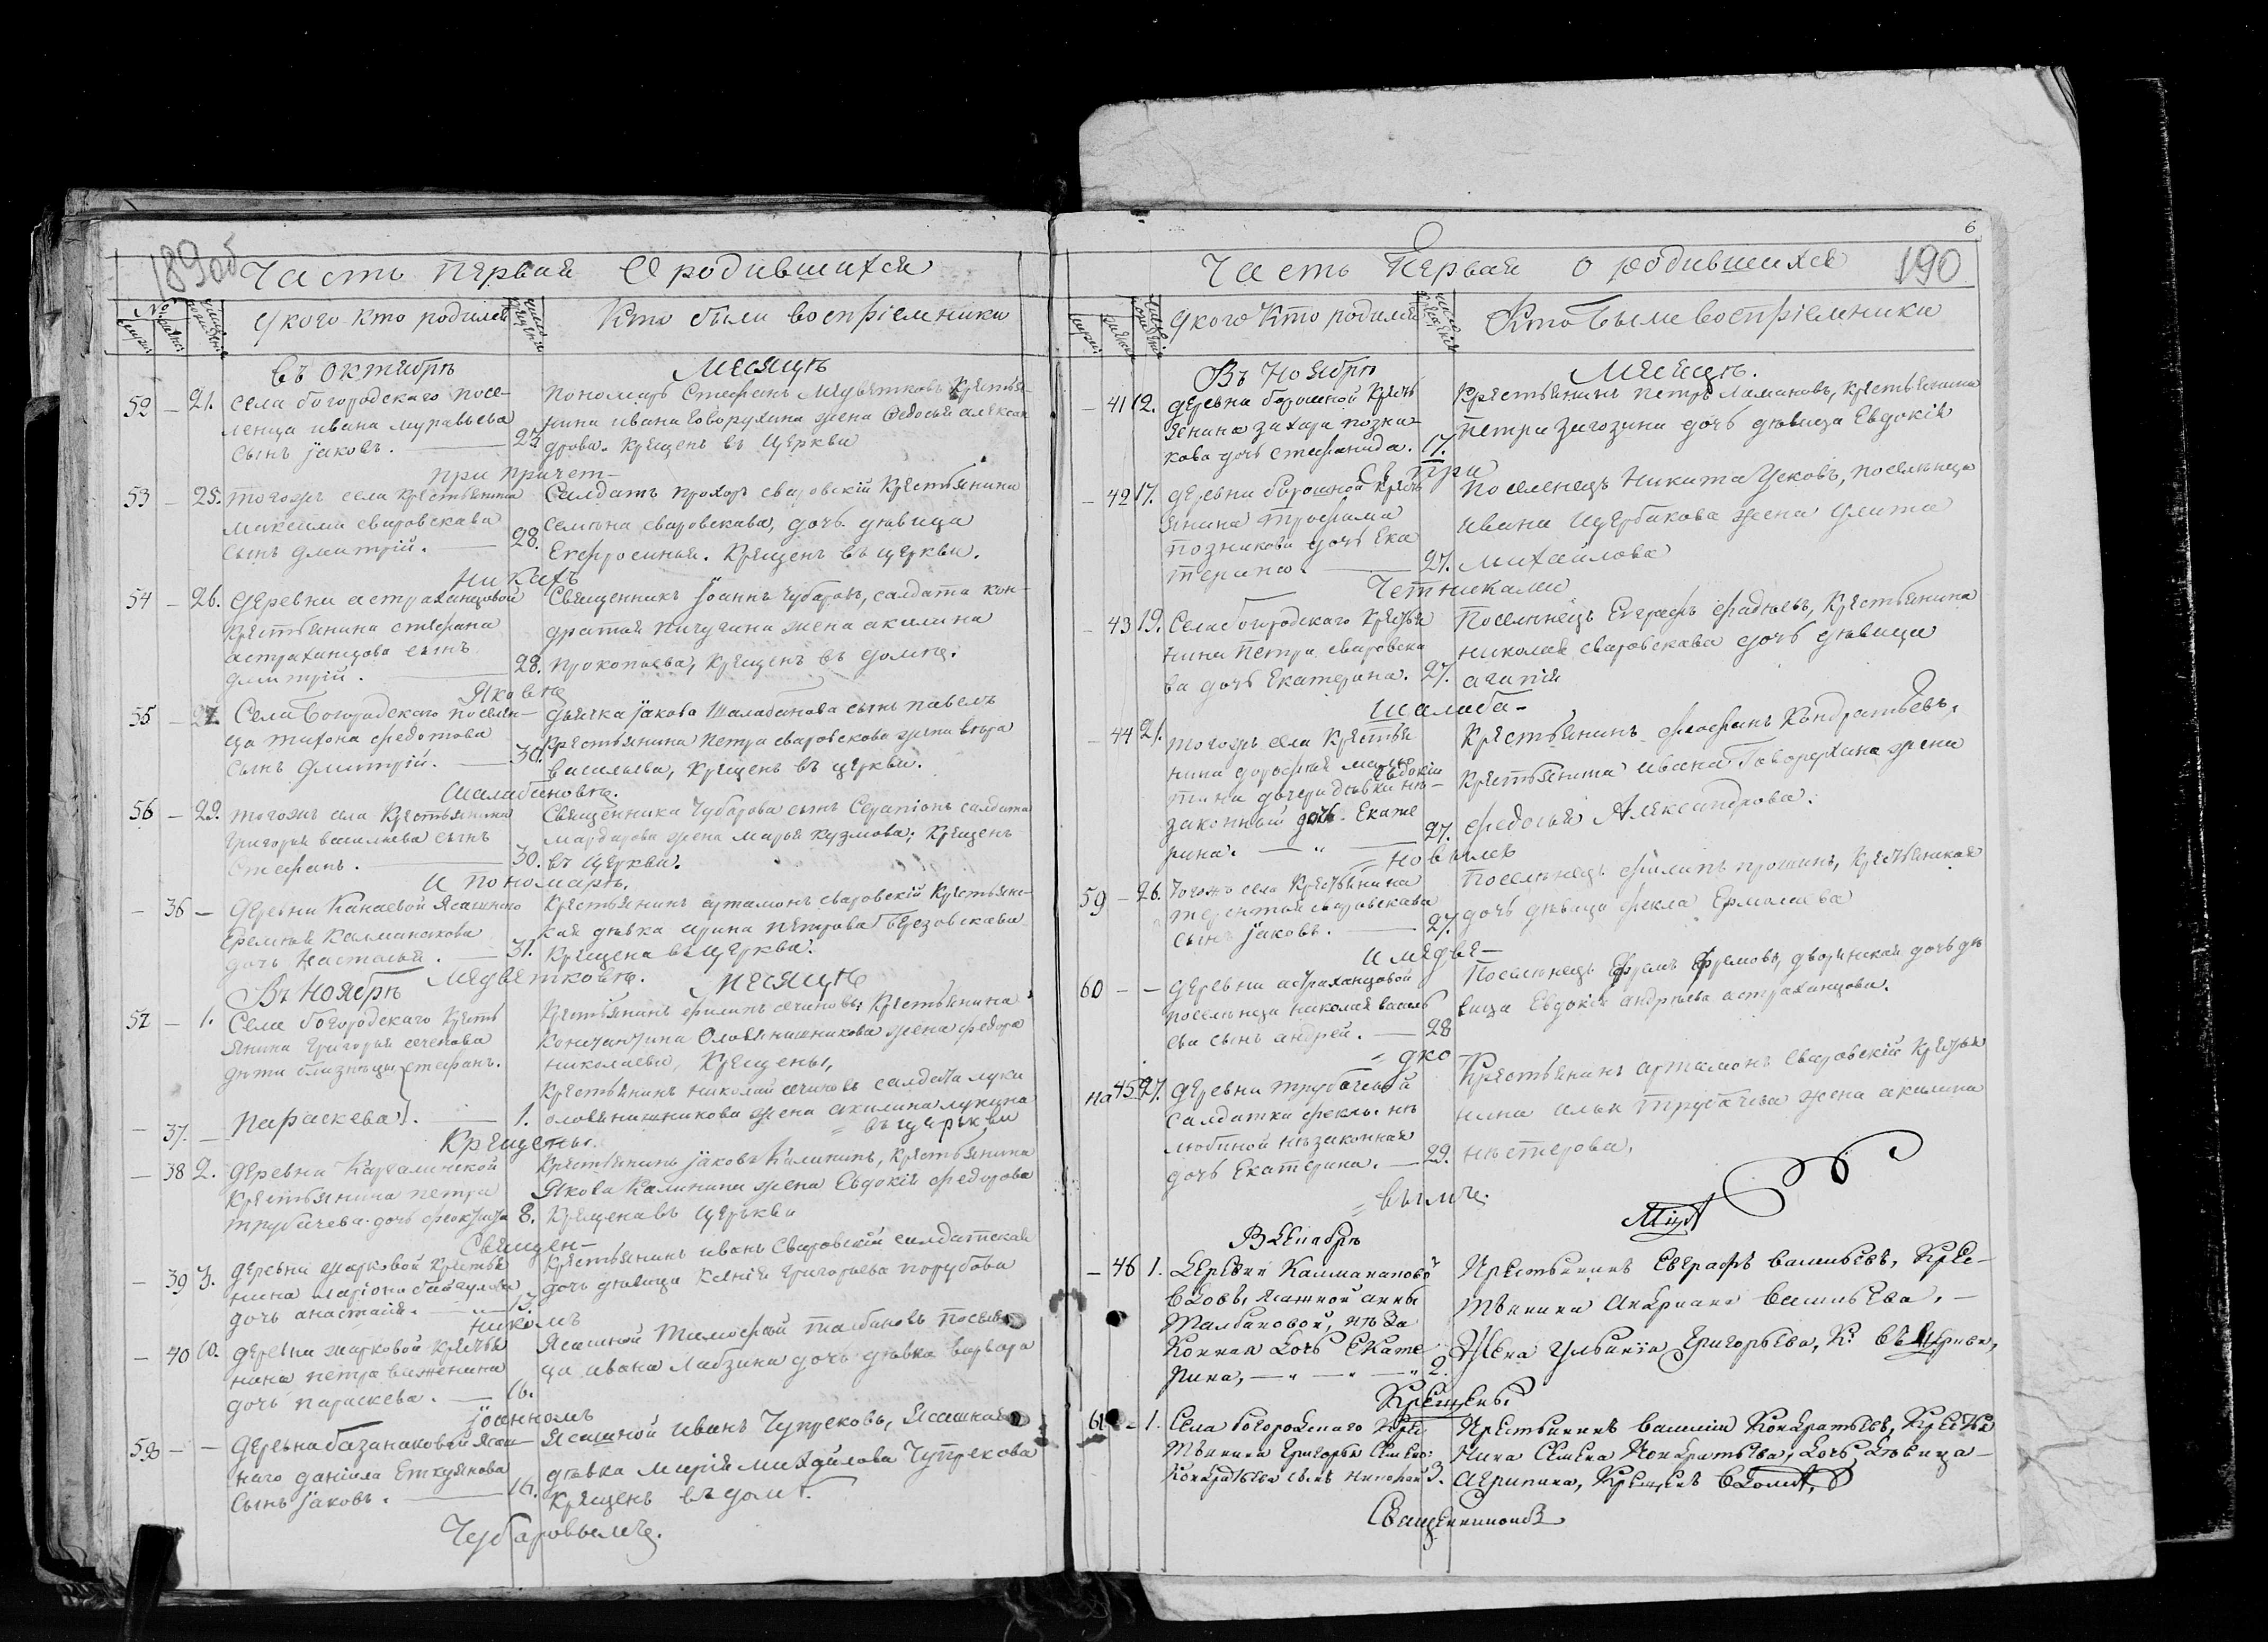 189об
Часть первая О родившихся
№
У кого кто родился
Кто были восприемники
въ октябрѣ
месяцѣ
52 — 21. села богородскаго посе-
ленца ивана муравьева
сынъ яковъ. — 23.
Пономарь Стефанъ Медветковъ Крестья-
нина ивана Говорухина жена Федосья алексан
дрова. Крещенъ въ Церкви
при причет-
53 — 25. тогожъ села Крестьянина
максима сваровскава
сынъ Дмитрій. — 28.
Салдатъ прохоръ сваровскій Крестьянина
семена сваровскава, дочь дѣвица
Ефросинья. Крещенъ въ церкви.
никахъ
54 — 26. Деревни астраханцовой
Крестьянина стефана
астраханцова сынъ
Дмитрій. 28.
Священникъ Іоаннъ Чубаровъ, салдата кон-
дратья пичугина жена акилина
прокопьева, Крещенъ въ домѣ.
Яковѣ
55 — 27 Села Богородскаго поселен-
ца тихона федотова
сынъ Дмитрій. — 30.
дьячка Іакова Шалабанова сынъ павелъ
Крестьянина Петра сваровскова жена вѣра
васильева, Крещенъ въ церкви.
Шалабановѣ.
56 — 29. тогожъ села Крестьянина
Григорья васильева сынъ
Стефанъ. 30.
Священника Чубарова сынъ Серапіонъ салдата
мардарова жена марья кузмова; Крещенъ
въ Церкви.
И пономарѣ.
— 36 — Деревни Канаевой Ясашного
Еремея Калманакова
дочь Настасья. — 31.
Крестьянинъ артамонъ сваровскій Крестьянс-
кая дѣвка арина петрова березовскава
Крещена въ Церкви.
Медветковѣ.
Въ Ноябрѣ
месяцѣ
57 — 1. Села богородскаго Кресть
янина Григорья сеченова
дѣти близнецы стефанъ.
Крестьянинъ филипъ сечиновъ Крестьянина
Константина Оловянишникова жена федора
николаева, Крещены,
— 37. — Параскева. — 1.
Крестьянинъ николай сечиновъ салдата луки
оловянишникова жена акилина лукина
въ церькви
Крещены.
— 38 2. Деревни Каргалинской
Крестьянина петра
трубачева дочь феоктиста 8.
Крестьянинъ Іаковъ Калининъ, Крестьянина
Якова Калинина жена Евдокія федорова
Крещена въ Церькви
Священ-
— 39 3. деревни жарковой Крестья
нина
дочь анастасія. 13.
Крестьянинъ иванъ Сваровскій салдатская
дочь дѣвица Ксенія Григорьева порубова
никомъ
— 40 10. деревни жарковой Крестья
нина петра важенина
дочь параскева. — 16.
Ясашной Тимофей талбановъ поселен
ца ивана Лабзина дочь дѣвка варвара
Іоанномъ
58 — — Деревна базанаковой Ясаш-
наго даніила Еткуянова
Сынъ яковъ. — 16.
Ясашной иванъ Чупрековъ, Ясашная
дѣвка марія михайлова Чупрекова
Крещенъ въ домѣ.
Чубаровымъ.
6
190
Часть Первая о родившихся
У кого Кто родился
Кто были восприемники
Въ Ноябрѣ
месецѣ.
— 41 12. деревни борошной Кресть
янина захара позня-
кова дочь стефанида. 17.
Крестьянинъ петръ Ламановъ, Крестьянина
петра загозина дочь дѣвица Евдокія
При
— 42 17. деревни борошной Кресть
янина трофима
познякова дочь Ека
терина. — 27.
поселенецъ никита Усковъ, поселенца
ивана Щербакова жена Улита
михайлова
Четниками
— 43 19. Села богородскаго Крестья
нина петра сваровска
ва дочь Екатерина. 27.
Поселенецъ Евграфъ фадѣевъ, Крестьянина
николая сваровскава дочь дѣвица
агапія
Шалаба-
— 44 21. тогожъ села Крестья
нина дорофея
дочери дѣвки Евдокіи не-
законный дочь Екате
рина. 27.
Крестьянинъ феофанъ Кондратьевъ,
Крестьянина ивана Говорухина жена
федосья Александрова.
новымъ
59 — 26. Тогожъ села Крестьянина
терентья сваровскава
сынъ Іаковъ. — 27.
Поселенецъ филипъ прошинъ, Крестьянская
дочь дѣвица фекла Ермолаева
и медве-
60 — — деревни астраханцовой
поселенца николая василь
ева сынъ андрей. — 28
Поселенецъ Ефремъ Ефремовъ, дворянская дочь дѣ
вица Евдокія андрѣева астраханцова.
дко
на 45 27. деревни трубачевой
салдатки феклы не
любиной незаконная
дочь Екатерина. — 29.
Крестьянинъ артамонъ Сваровскій Крестья
нина ильи трубачева жена акилина
нестерова.
вымъ.
В Декабрѣ
мцѣ
— 46 1. Деревни Калманаковой
вдовы ясашной анны
Талбановой, неза
конная дочь Екате
рина, — 2.
Крестьянинъ Евграфъ васильевъ, Крес-
тьянина Андриана васильева, —
Жена Ульянія Григорьева, К: въ Церкви,
Крещены
61 — 1. Села богородскаго Крес
тьянина Григорья Семено:
Кондратьева сынъ николай 3.
Крестьянинъ василій Кондратьевъ, Крестья
нина Семена Кондратьева, дочь дѣвица
Агрипина, Крещенъ въ домѣ,
Священникомъ